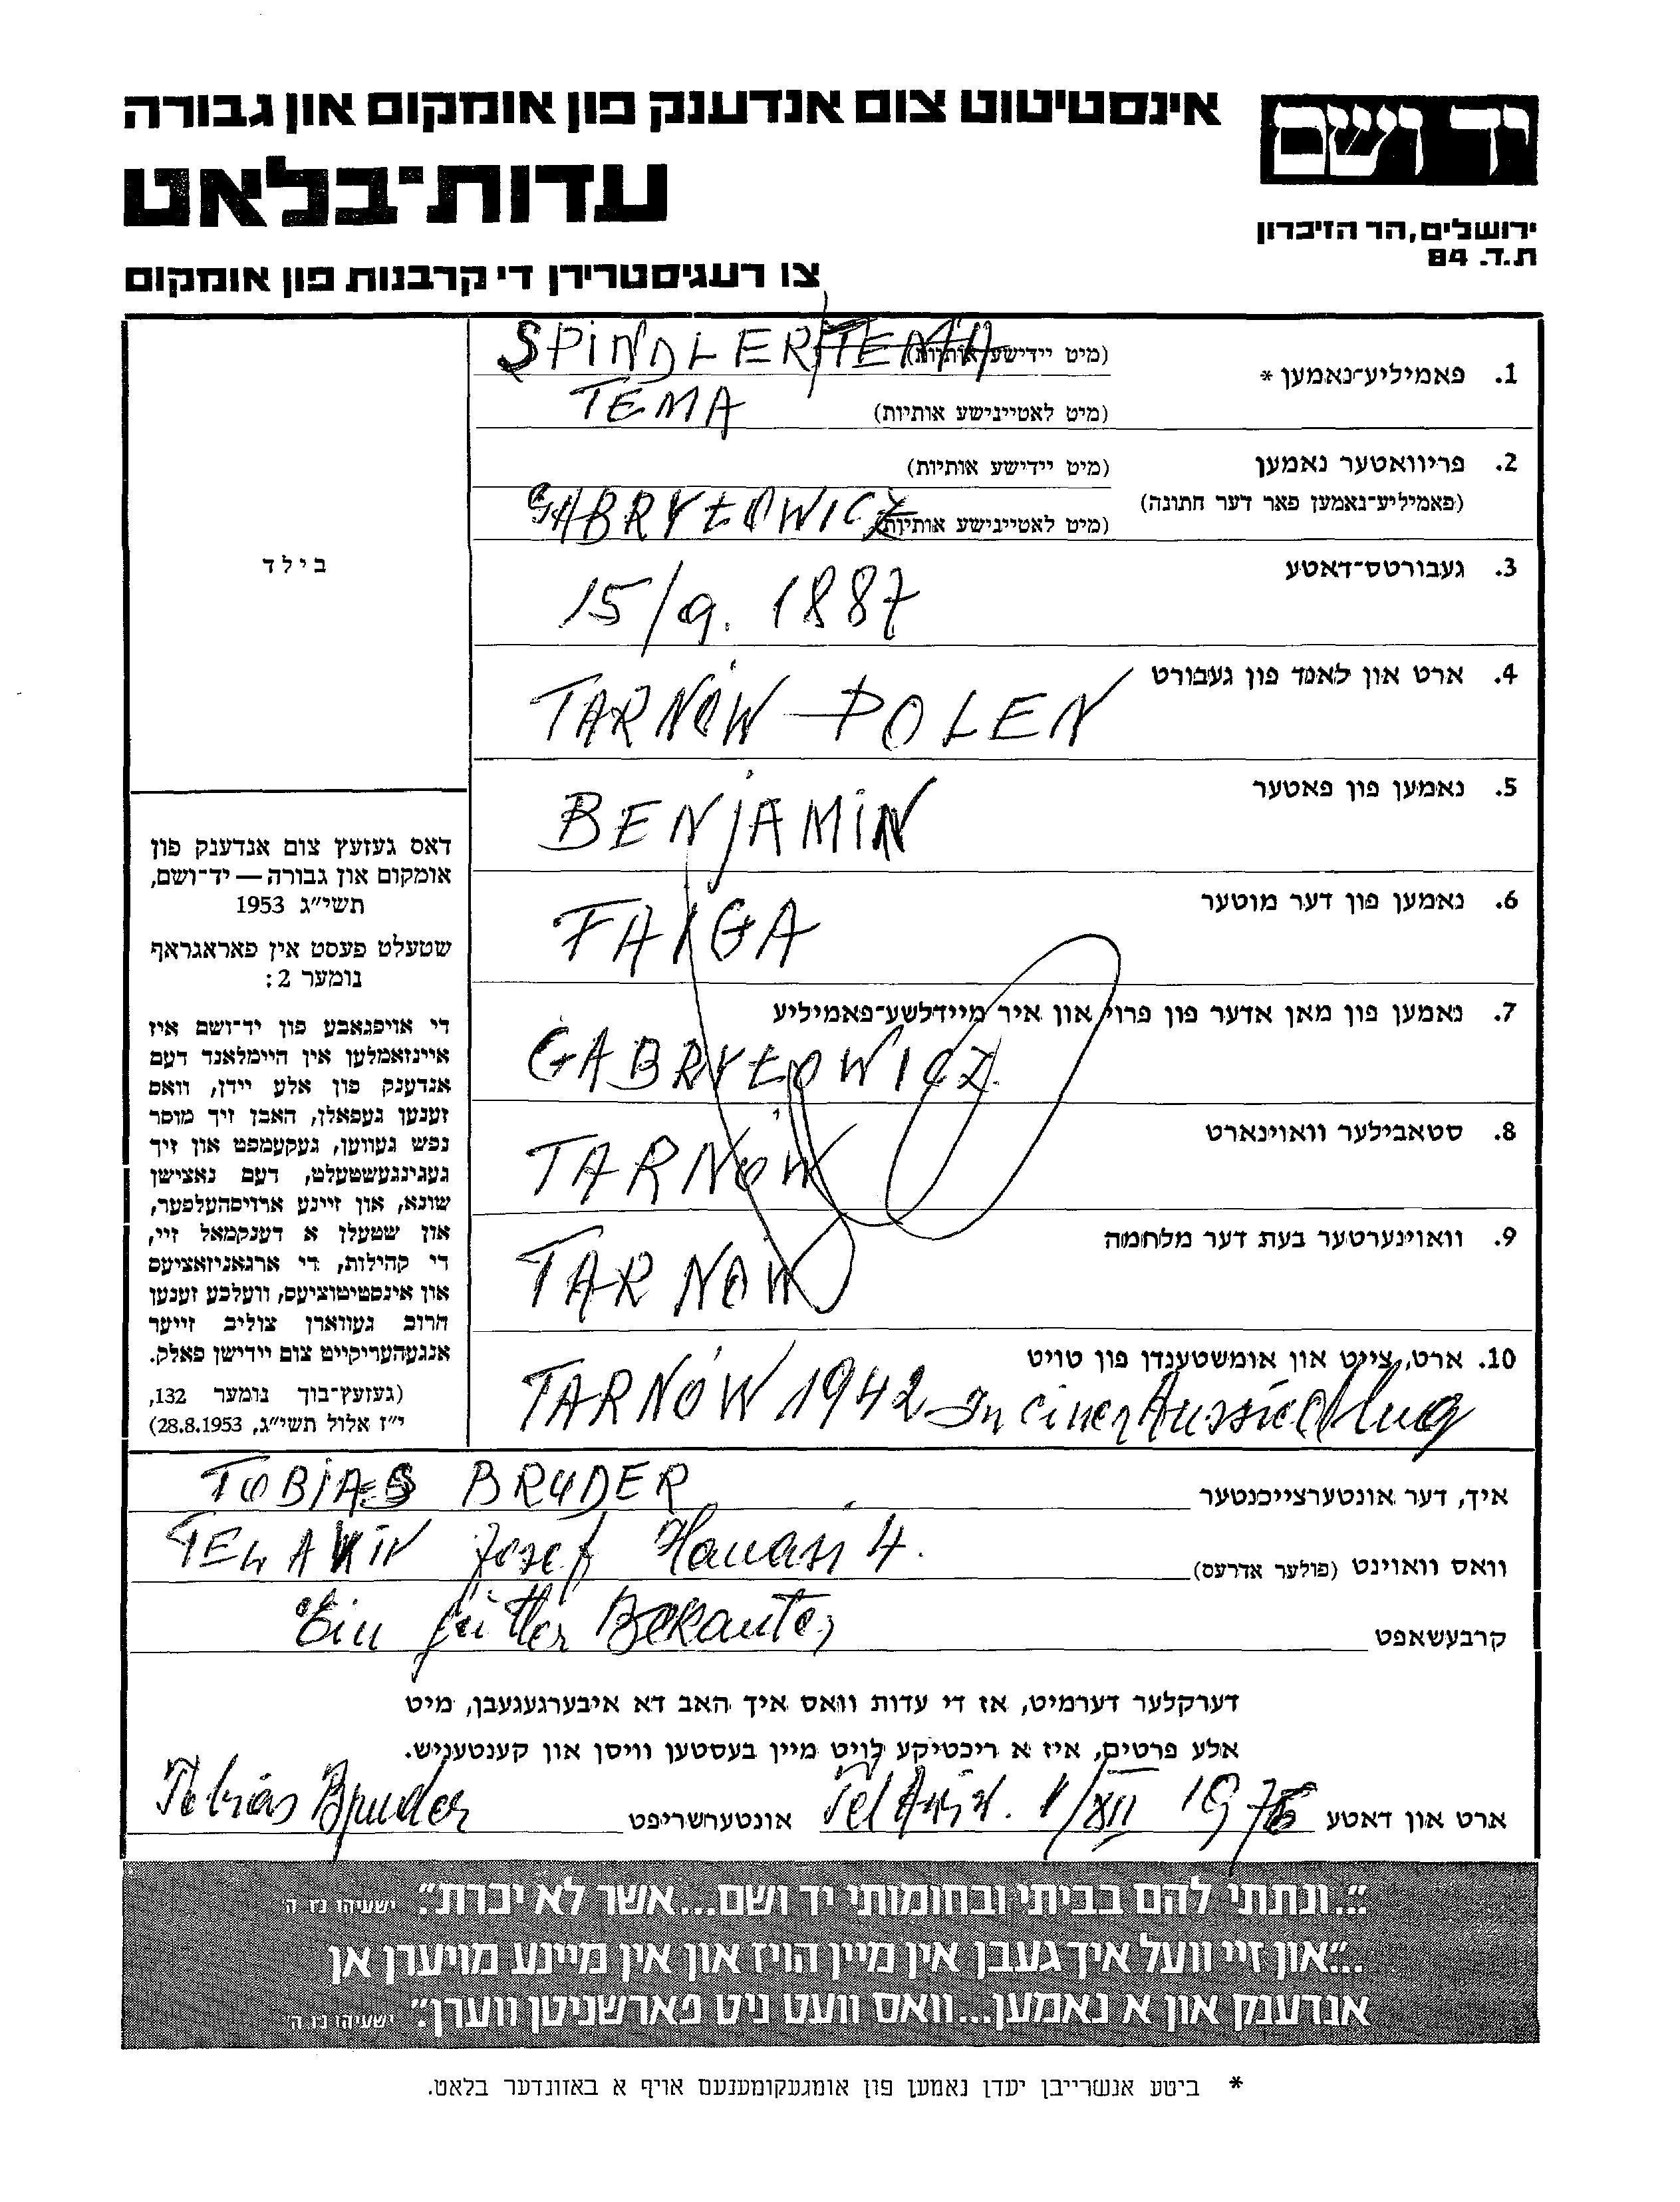 אינסטיטוט צום אנדענק פון אומקום און גבורה
יד ושם
עדות־בלאט
ירושלים, הר הזיכרון
ת.ד. 84
צו רעגיסטרירן די קרבנות פון אומקום
1. פאמיליע־נאמען *
(מיט יידישע אותיות) SPINDLER TEMA
(מיט לאטיינישע אותיות) TEMA
2. פריוואטער נאמען
(פאמיליע־נאמען פאר דער חתונה)
(מיט יידישע אותיות)
(מיט לאטיינישע אותיות) GABRYŁOWICZ
3. געבורטס־דאטע
15/9. 1887
4. ארט און לאנד פון געבורט
TARNÓW - POLEN
5. נאמען פון פאטער
BENJAMIN
6. נאמען פון דער מוטער
FAIGA
7. נאמען פון מאן אדער פון פרוי און איר מיידלשע־פאמיליע
GABRYŁOWICZ.
8. סטאבילער וואוינארט
TARNÓW
9. וואוינערטער בעת דער מלחמה
TARNÓW
10. ארט, צייט און אומשטענדן פון טויט
TARNÓW 1942 In einer Aussiedlug
בילד
דאס געזעץ צום אנדענק פון
אומקום און גבורה — יד־ושם,
תשי״ג 1953
שטעלט פעסט אין פאראגראף
נומער 2:
די אויפגאבע פון יד־ושם איז
איינזאמלען אין היימלאנד דעם
אנדענק פון אלע יידן, וואס
זענען געפאלן, האבן זיך מוסר
נפש געווען, געקעמפט און זיך
געגינגעשטעלט, דעם נאצישן
שונא, און זיינע ארויסהעלפער,
און שטעלן א דענקמאל זיי,
די קהילות, די ארגאניזאציעס
און אינסטיטוציעס, וועלכע זענען
חרוב געווארן צוליב זייער
אנגעהעריקייט צום יידישן פאלק.
(געזעץ־בוך נומער 132,
י״ז אלול תשי״ג, 28.8.1953)
איך, דער אונטערצייכנטער TOBIAS BRUDER
וואס וואוינט (פולער אדרעס) TEL AVIV Josef Hanasi 4.
קרבעשאפט Ein gutter Bekanter
דערקלער דערמיט, אז די עדות וואס איך האב דא איבערגעגעבן, מיט
אלע פרטים, איז א ריכטיקע לויט מיין בעסטען וויסן און קענטעניש.
ארט און דאטע Tel Awiw. 1/XII 1976 אונטערשריפט Tobias Bruder
״...ונתתי להם בביתי ובחומותי יד ושם...אשר לא יכרת״. ישעיהו נז ה'
״...און זיי וועל איך געבן אין מיין הויז און אין מיינע מויערן אן
אנדענק און א נאמען...וואס וועט ניט פארשניטן ווערן״. ישעיהו נז ה'
* ביטע אנשרייבן יעדן נאמען פון אומגעקומענעם אויף א באזונדער בלאט.